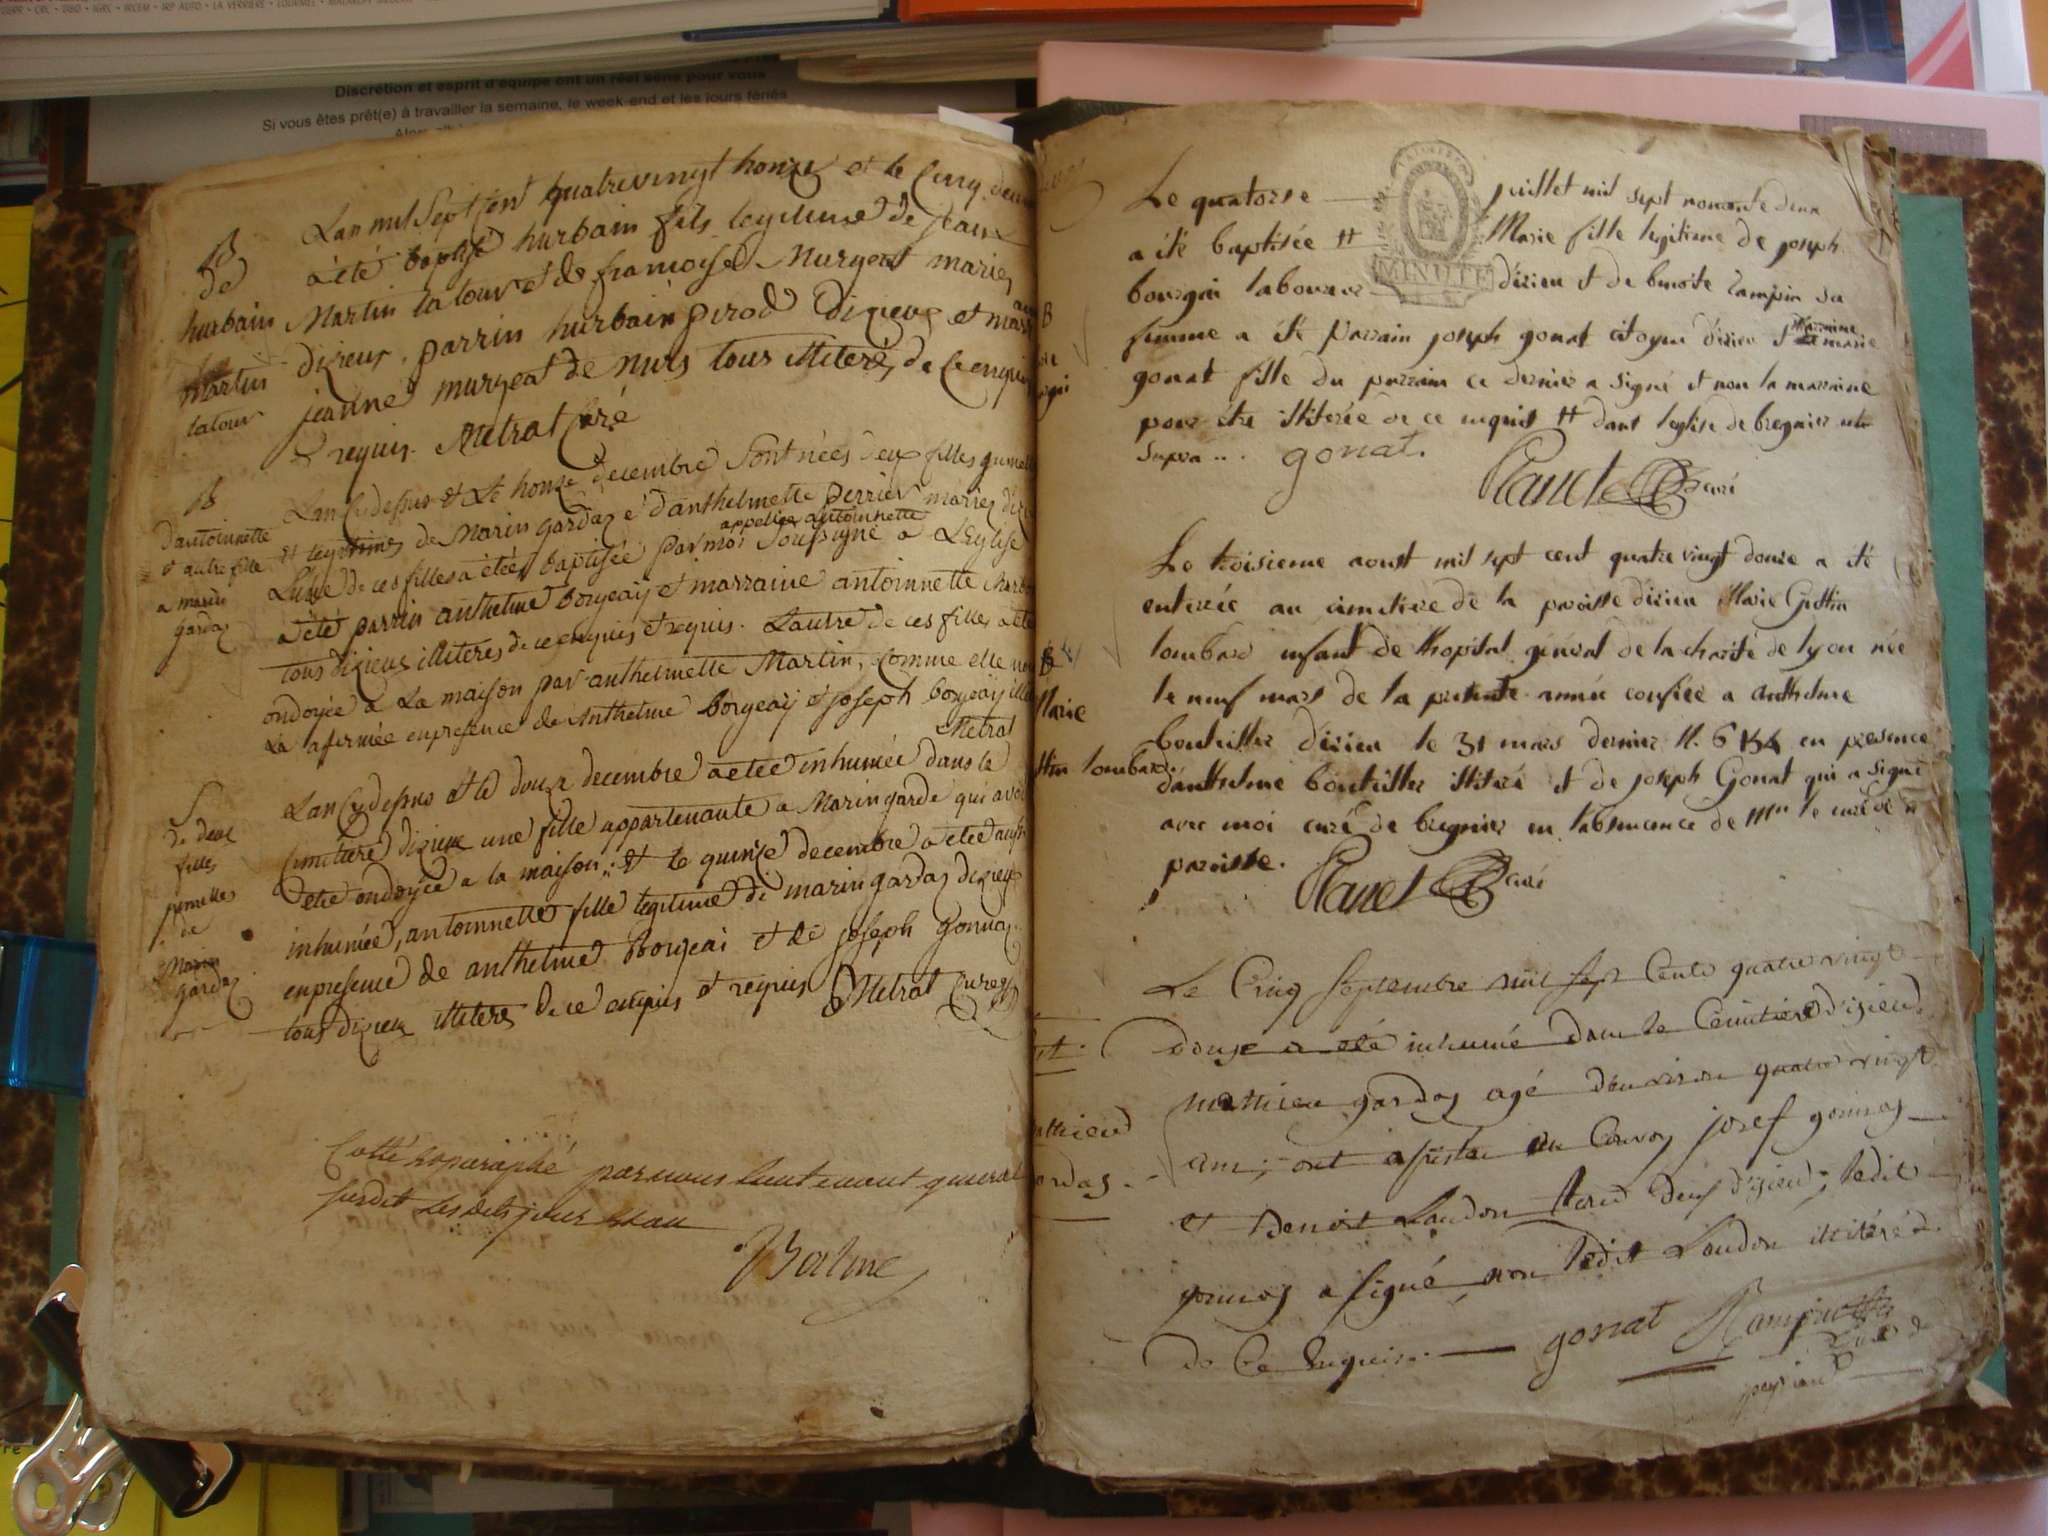 Discrétion et esprit d'équipe ont un réel sens pour vous
Si vous êtes prêt(e) à travailler la semaine, le week-end et les jours fériés
Lan mil Sept Cent quatrevingt honze et le Cinq
a été baptisé hurbain fils legitime de jean
Martin latour et de francoise Murgeat mariez
dizieux. parrin hurbain pirod dizieux et
jeanne murgeat de Murs tous illiterés de ce enquis
et requis. Metrat Curé
B
de
hurbain
Martin
latour
Lan Cy dessus et Le honze decembre Sont nées deux filles
et legitimes de Marin gardaz et d'anthelmette perrier mariez
appellée antoinnette
Lune de ces filles a étée baptisée par moi Soussigné a L'Eglise
a été parrin anthelme borgeay et marraine antoinnette
tous dizieux illiteres de ce enquis et requis. L'autre de ces filles a été
ondoyée a La maison par anthelmette Martin, Comme elle
La afirmée en presence de Anthelme borgeay et joseph borgeay
Metrat
B
d'antoinnette
et autre fille
a marin
gardaz
Lan Cy dessus et le douze decembre a étée inhumée dans le
Cimetiere dizieux une fille appartenante a Marin gardé qui
etée ondoyée a la maison; et le quinze decembre a étée aussi
inhumée, antoinnette fille legitime de marin gardaz dizieux
en presence de anthelme Borgeai et de joseph Gonnaz
tous dizieux illiteres de ce enquis et requis Metrat Curé
S
de deux
filles
jumelles
de
Marin
gardaz
Cotté et paraphé par nous lieutenant general
susdit les dits jour et an
Balme
Le quatorse juillet mil sept nonante deux
a été baptisée # Marie fille legitime de joseph
MINUTE
bourgai laboureur dizieu et de benoite rampin sa
femme a été parrain joseph gonat citoyen dizieu et marraine marie
gonat fille du parrain ce dernier a signé et non la marraine
pour être illiterée de ce requis # dans leglise de bregnier ut
supra ... gonat.
Planet curé
Le troisieme aoust mil sept cent quatre vingt douse a été
enterrée au cimetiere de la paroisse dizieu Marie Guttin
lombard enfant de lhopital général de la charité de lyon née
le neuf mars de la presente année confiée a anthelme
bouteiller dizieu le 31 mars dernier N. 654 en presence
d'anthelme bouteiller illiteré et de joseph Gonat qui a signé
avec moi curé de bregnier en l'absence de Mr le curé de
paroisse. Planet curé
B
Marie
ttin lombard
Le Cinq Septembre mil sept Cents quatre vingt
douze a été inhumé dans le Cimitiere d'izieu
mathieu gardaz agé denviron quatre vingt
ans; ont assisté au Convoy josef gonnaz
et Benoit Laudon tous deux d'izieu; ledit
gonnaz a signé, non ledit Laudon illitéré
de Ce Enquis. gonat
athieu
ardaz.